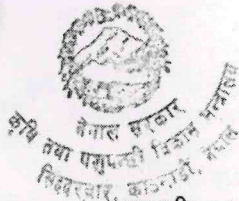 नेपाल सरकार
कृषि तथा पशुपन्छी विकास मन्त्रालय
सिंहदरबार, काठमाडौं, नेपाल